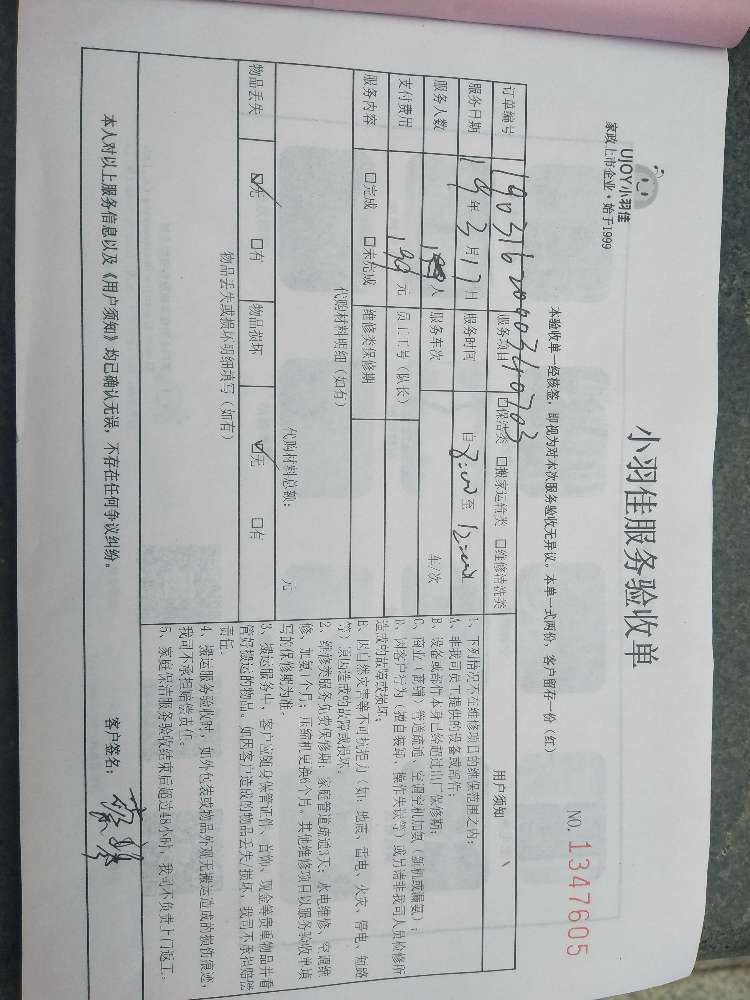 UJOY小羽佳
家政上市企业·始于1999
小羽佳服务验收单
NO. 1347605
本验收单一经核签，即视为对本次服务验收无异议。本单一式两份，客户留存一份（红）
订单编号 190316209003140703
服务项目 □保洁类 □搬家运输类 □维修清洗类
服务日期 19年3月17日 服务时间 自8:00至12:00
服务人数 人 服务车次 车/次
支付费用 199元 员工工号（队长）
服务内容 □完成 □未完成 维修类保修期
代购材料明细（如有）
代购材料总额： 元
物品丢失 ☑无 □有 物品损坏 ☑无 □有
物品丢失或损坏明细填写（如有）
用户须知
1、下列情况不在维修项目的维保范围之内：
A、非我司员工提供的设备或部件；
B、设备或部件本身已经超过出厂保修期；
C、商业（商铺）管道疏通、空调整机加氨（新机或漏氨）；
D、因客户行为（擅自拆卸、操作失误等）或另请非我司人员检修所
造成的故障或损坏；
E、因自然灾害等不可抗拒力（如：地震、雷电、火灾、停电、短路
等）原因造成的故障或损坏。
2、维修类服务免费保修期：家庭管道疏通3天；水电维修、空调维
修、加氨1个月；压缩机更换6个月。其他维修项目以服务验收单填
写的保修期为准。
3、搬运服务中，客户应随身保管证件、首饰、现金等贵重物品并看
管好搬运的物品。如因客户造成的物品丢失/损坏，我司不承担赔偿
责任。
4、搬运服务验收时，如外包装或物品外观无搬运造成的损伤痕迹，
我司不承担赔偿责任。
5、家庭保洁服务验收结束后超过48小时，我司不负责上门返工。
本人对以上服务信息以及《用户须知》均已确认无误，不存在任何争议纠纷。
客户签名：